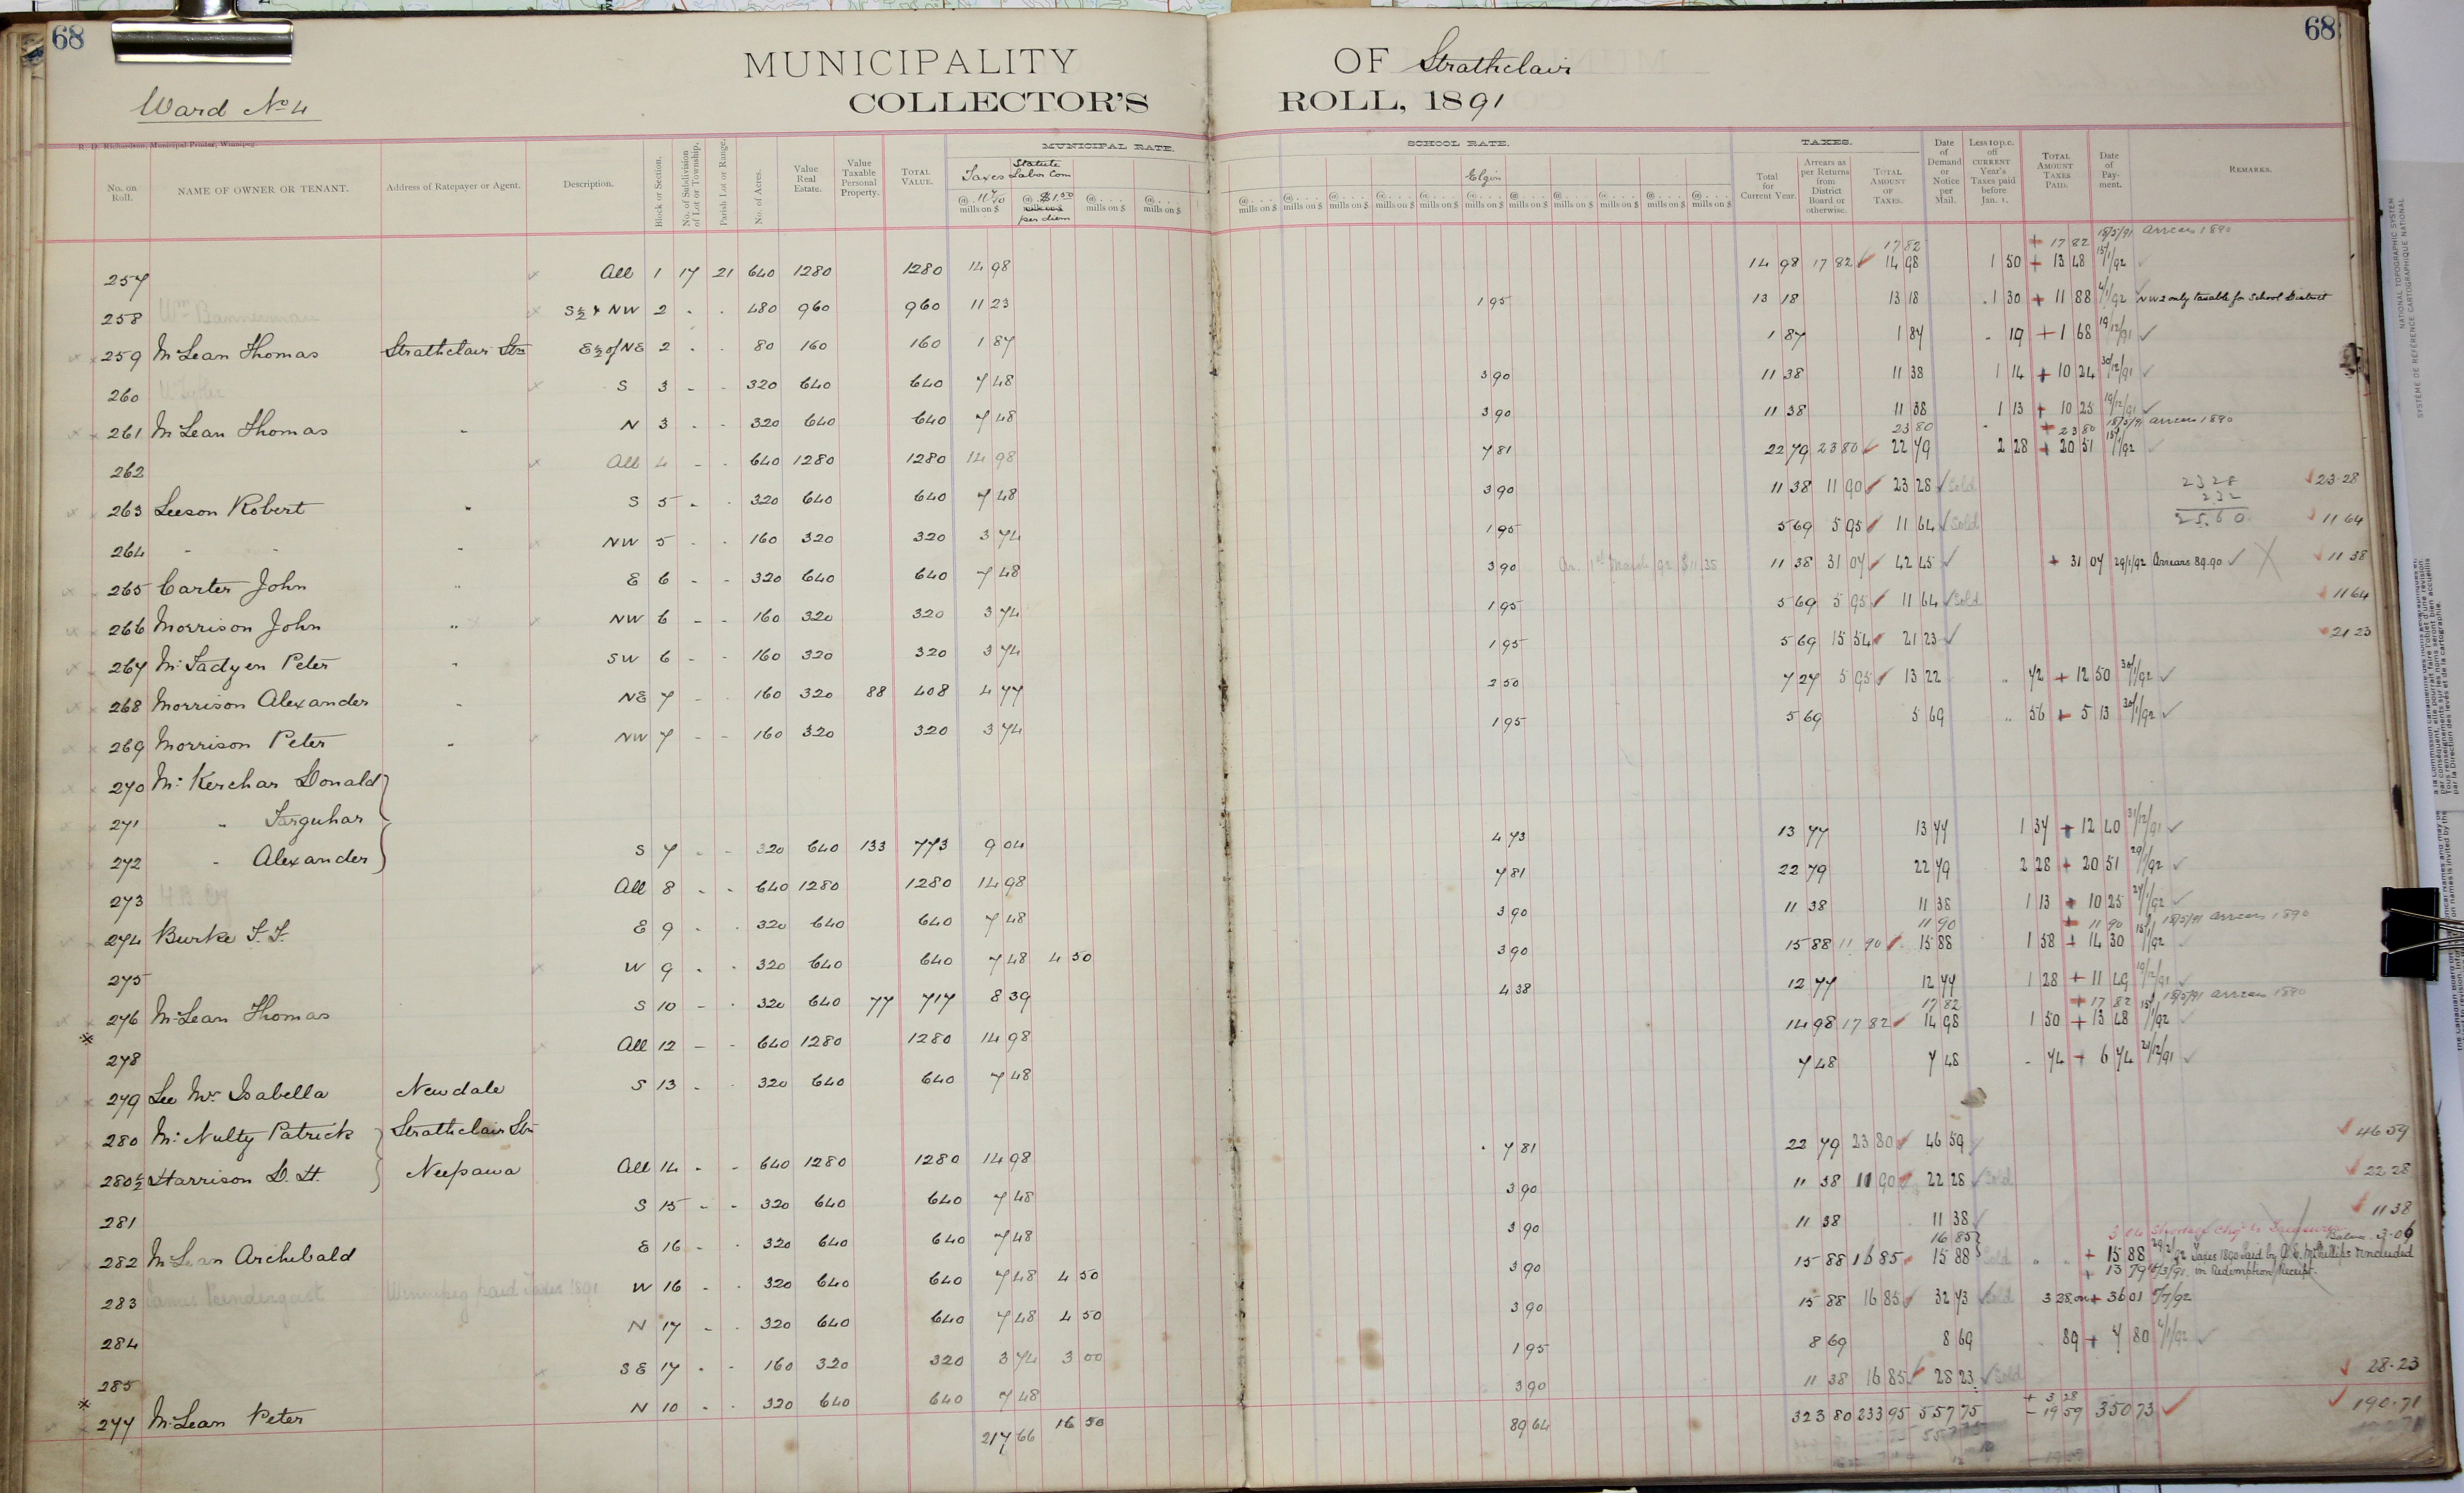 68
68
MUNICIPALITY OF Strathclair
COLLECTOR'S ROLL, 1891
Ward No 4
R. D. Richardson, Municipal Printer, Winnipeg.
No. on Roll. NAME OF OWNER OR TENANT. Address of Ratepayer or Agent. Description. Block or Section. No. of Subdivision of Lot or Township. Parish Lot or Range. No. of Acres. Value Real Estate. Value Taxable Personal Property. TOTAL VALUE. MUNICIPAL RATE. SCHOOL RATE. TAXES.
Taxes Statute Labor Com Elgin
@ 11 7/10 mills on $ @ $1.50 mills on $ per diem @ . . . mills on $ @ . . . mills on $
Total for Current Year. Arrears as per Returns from District Board or otherwise. TOTAL AMOUNT OF TAXES. Date of Demand or Notice per Mail. Less 10 p.c. off CURRENT Year's Taxes paid before Jan. 1. TOTAL AMOUNT TAXES PAID. Date of Payment. REMARKS.
17 82 + 17 82 18/5/91 arrears 1890
257 All 1 17 21 640 1280 1280 14 98 14 98 17 82 14 98 1 50 + 13 48 15/1/92
258 Wm Bannerman S½ & NW 2 . . 480 960 960 11 23 1 95 13 18 13 18 1 30 + 11 88 4/1/92 NW 2 only taxable for School District
259 McLean Thomas Strathclair Stn E½ of NE 2 . . 80 160 160 1 87 1 87 1 87 19 + 1 68 19/12/91
260 S 3 - - 320 640 640 7 48 3 90 11 38 11 38 1 14 + 10 24 30/12/91
261 McLean Thomas " N 3 . . 320 640 640 7 48 3 90 11 38 11 38 1 13 + 10 25 19/12/91
23 80 + 23 80 18/5/91 arrears 1890
262 All 4 - - 640 1280 1280 14 98 7 81 22 79 23 80 22 79 2 28 + 20 51 15/1/92
263 Leeson Robert " S 5 - . 320 640 640 7 48 3 90 11 38 11 90 23 28 Sold 23 28 23.28
2 32
25.60
264 " " " NW 5 . . 160 320 320 3 74 1 95 5 69 5 95 11 64 Sold 11 64
265 Carter John " E 6 - - 320 640 640 7 48 3 90 11 38 31 07 42 45 + 31 07 29/1/92 Arrears 89.90 11 38
266 Morrison John " NW 6 - - 160 320 320 3 74 1 95 5 69 5 95 11 64 Sold 11 64
267 McFadyen Peter " SW 6 - - 160 320 320 3 74 1 95 5 69 15 54 21 23 21 23
268 Morrison Alexander " NE 7 - . 160 320 88 408 4 77 2 50 7 27 5 95 13 22 72 + 12 50 30/1/92
269 Morrison Peter " NW 7 - - 160 320 320 3 74 1 95 5 69 5 69 56 + 5 13 30/1/92
270 McKerchar Donald
271 " Farquhar
272 " Alexander S 7 . - 320 640 133 773 9 04 4 73 13 77 13 77 1 37 + 12 40 31/12/91
273 H.B. Coy All 8 . - 640 1280 1280 14 98 7 81 22 79 22 79 2 28 + 20 51
274 Burke F. F. E 9 . . 320 640 640 7 48 3 90 11 38 11 38 1 13 + 10 25
11 90 + 11 90 18/5/91 arrears 1890
275 W 9 . . 320 640 640 7 48 4 50 3 90 15 88 11 90 15 88 1 58 + 14 30 15/1/92
276 McLean Thomas S 10 - . 320 640 77 717 8 39 4 38 12 77 12 77 1 28 + 11 49 19/12/91
17 82 + 17 82 18/5/91 arrears 1890
278 All 12 - - 640 1280 1280 14 98 14 98 17 82 14 98 1 50 + 13 48 15/1/92
279 Lee Mrs Isabella Newdale S 13 - . 320 640 640 7 48 7 48 7 48 74 + 6 74
280 McNulty Patrick Strathclair Stn
280½ Harrison D. H. Neepawa All 14 . - 640 1280 1280 14 98 7 81 22 79 23 80 46 59 46 59
281 S 15 - - 320 640 640 7 48 3 90 11 38 11 90 22 28 Sold 22 28
282 McLean Archibald E 16 - . 320 640 640 7 48 3 90 11 38 11 38 11 38
16 85 Balance 3.06
283 James Prendergast Winnipeg paid Taxes 1891 W 16 - . 320 640 640 7 48 4 50 3 90 15 88 16 85 15 88 Sold + 15 88 Taxes 1890 paid by A. E. McPhillips & included
+ 13 79 in Redemption Receipt.
284 N 17 - . 320 640 640 7 48 4 50 3 90 15 88 16 85 32 73 Sold 3 28 on + 36 01 5/7/92
285 SE 17 . - 160 320 320 3 74 3 00 1 95 8 69 8 69 89 + 7 80 4/1/92
277 McLean Peter N 10 . . 320 640 640 7 48 3 90 11 38 16 85 28 23 Sold 28.23
217 66 16 50 89 64 323 80 233 95 557 75 + 3 28 - 19 59 350 73 190.71